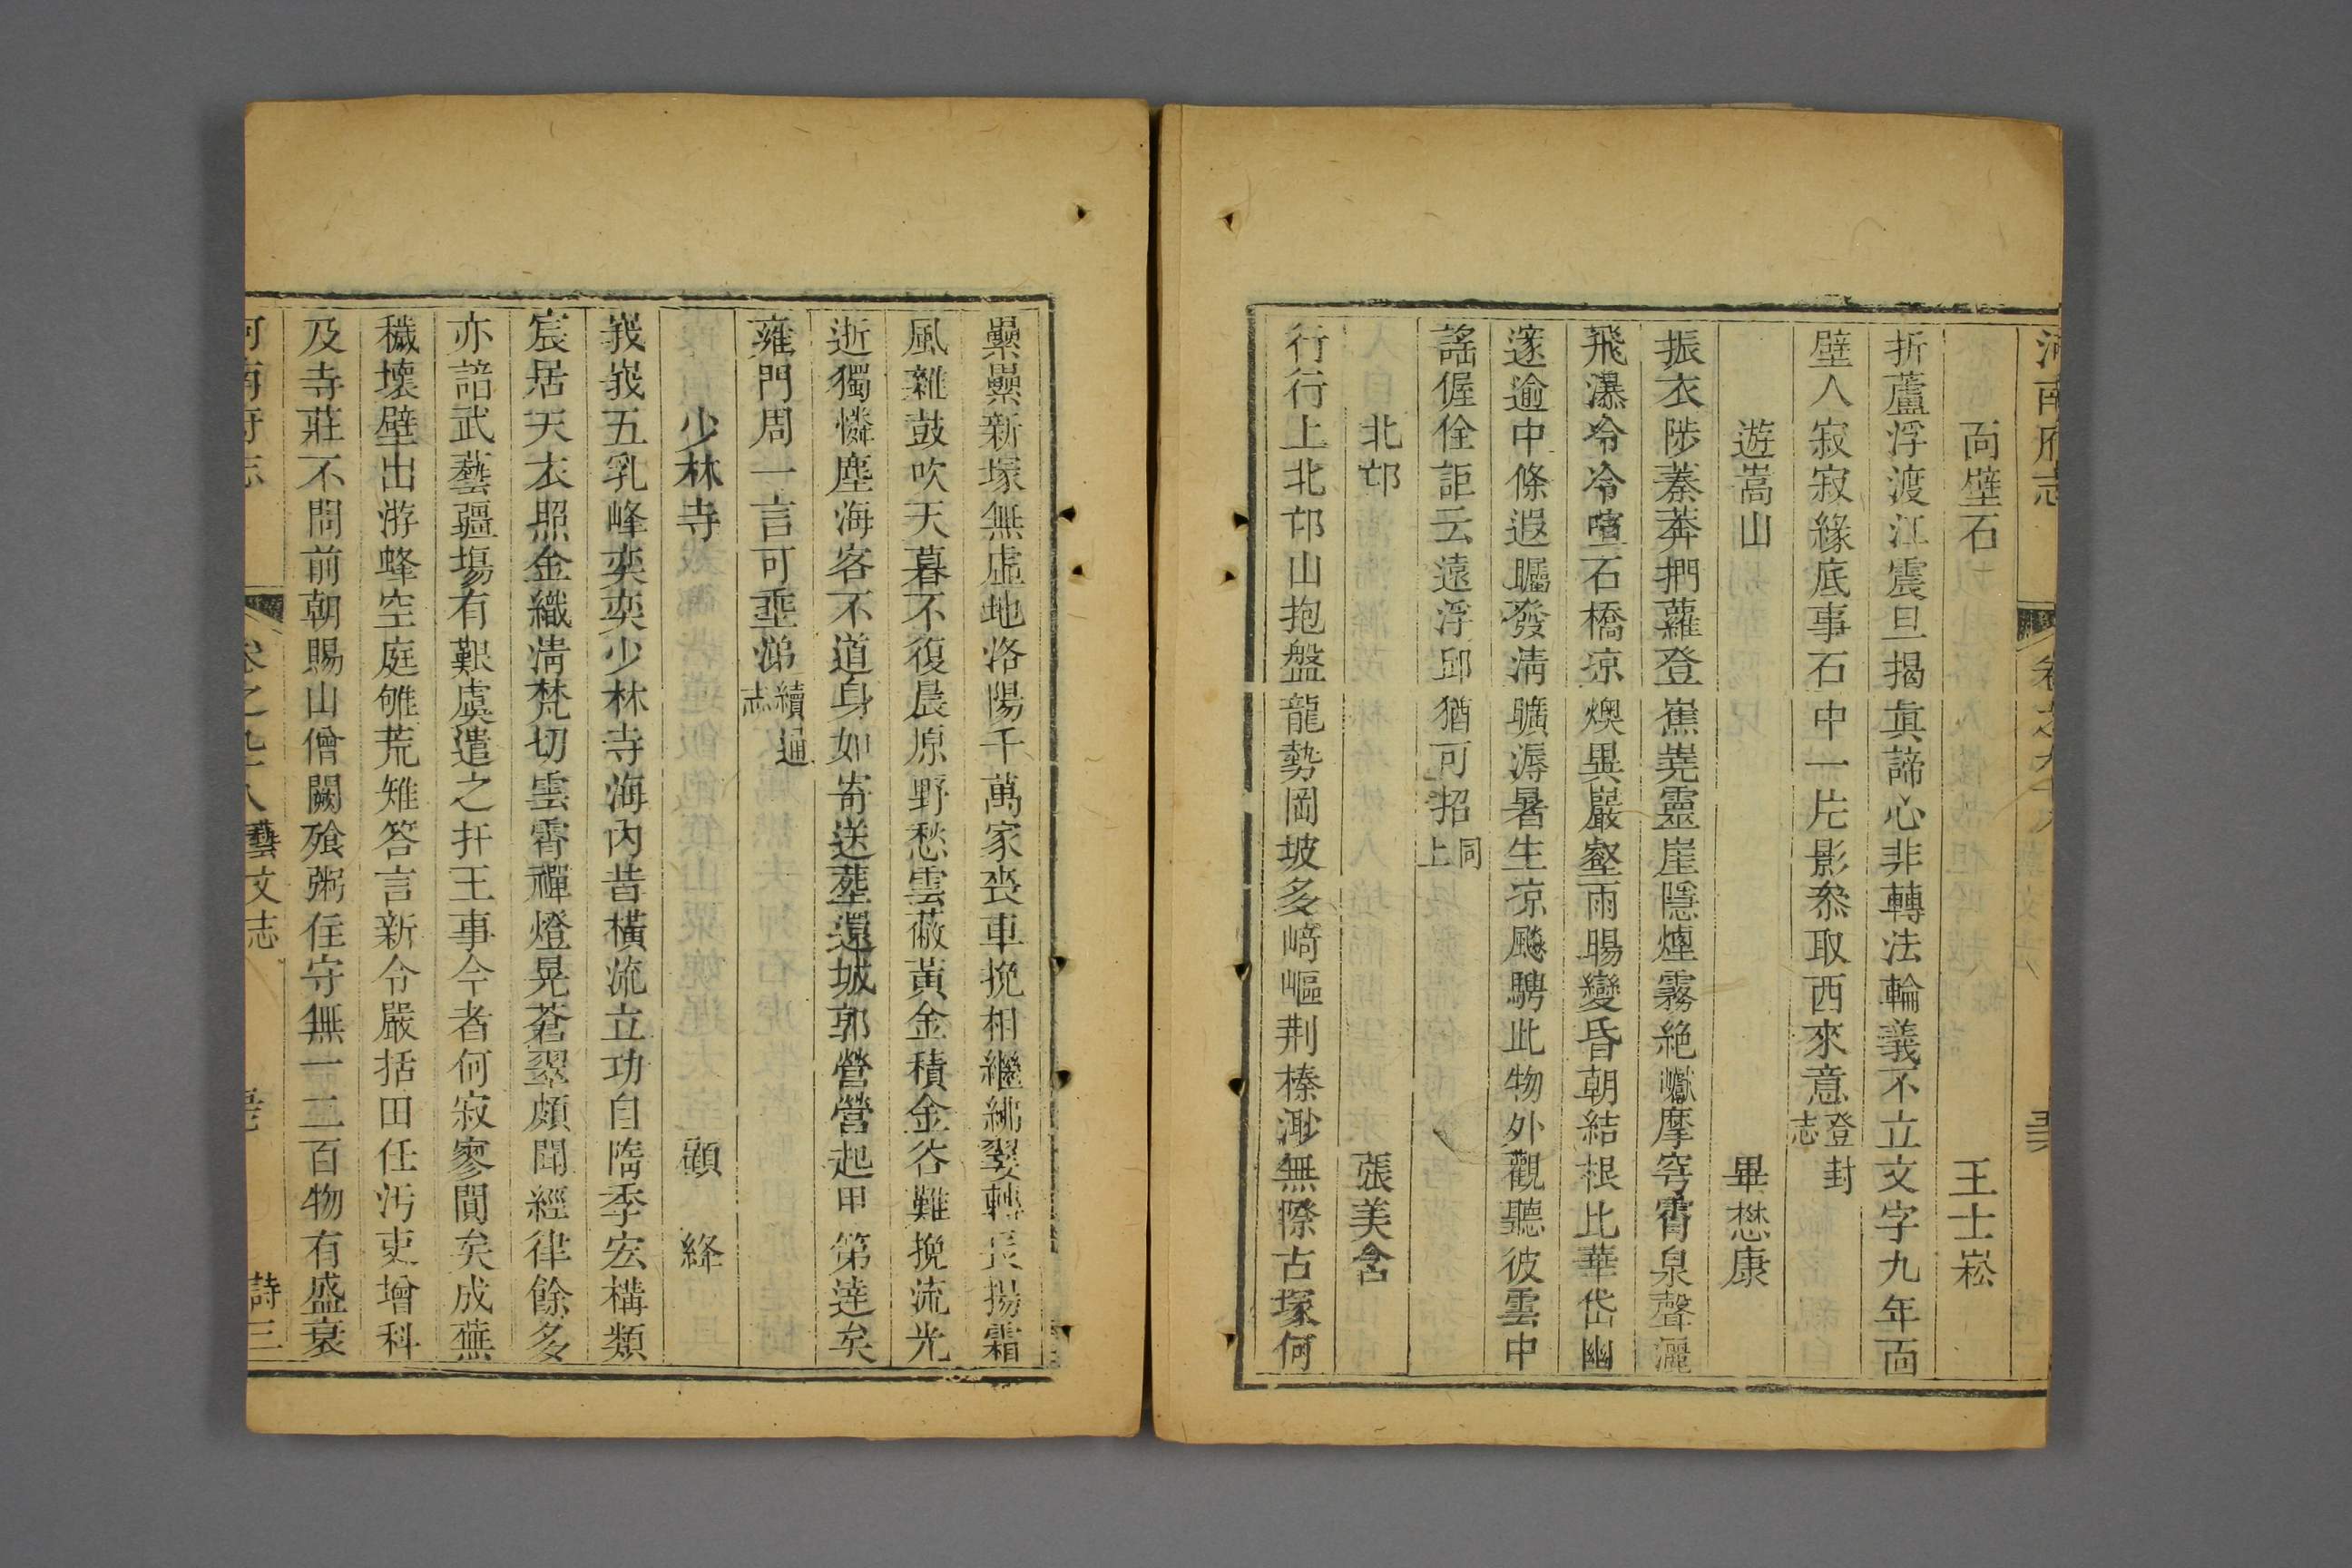 河南府志 卷之九十八
面壁石 王士崧
折蘆浮渡江震旦揭眞諦心非轉法輪義不立文字九年面
壁人寂寂緣底事石中一片影叅取西來意登封志
遊嵩山 畢懋康
振衣陟蓁莽捫蘿登嶣嶢靈崖隱煙霧絶巘摩穹霄泉聲灑
飛瀑冷冷喧石橋凉燠異巖壑雨暘變昏朝結根比華岱幽
邃逾中條遐矚發淸曠溽暑生凉飈騁此物外觀聽彼雲中
謠偓佺詎云遠浮邱猶可招同上
北邙 張美含
行行上北邙山抱盤龍勢岡坡多﨑嶇荆榛渺無際古塚何
纍纍新塚無虛地洛陽千萬家喪車挽相繼紼翣轉長揚霜
風雜鼓吹天暮不復晨原野愁雲蔽黃金積金谷難挽流光
逝獨憐塵海客不道身如寄送塟還城郭營營起甲第達矣
雍門周一言可垂涕續通志
少林寺 顧絳
峩峩五乳峰奕奕少林寺海內昔橫流立功自隋季宏構類
宸居天衣照金織淸梵切雲霄禪燈晃蒼翠頗聞經律餘多
亦諳武藝疆塲有艱虞遣之扞王事今者何寂寥閴矣成蕪
穢壞壁出游蜂空庭雊荒雉答言新令嚴括田任汚吏增科
及寺莊不問前朝賜山僧闕飱粥住守無一二百物有盛衰
河南府志 卷之九十八 藝文志 詩三